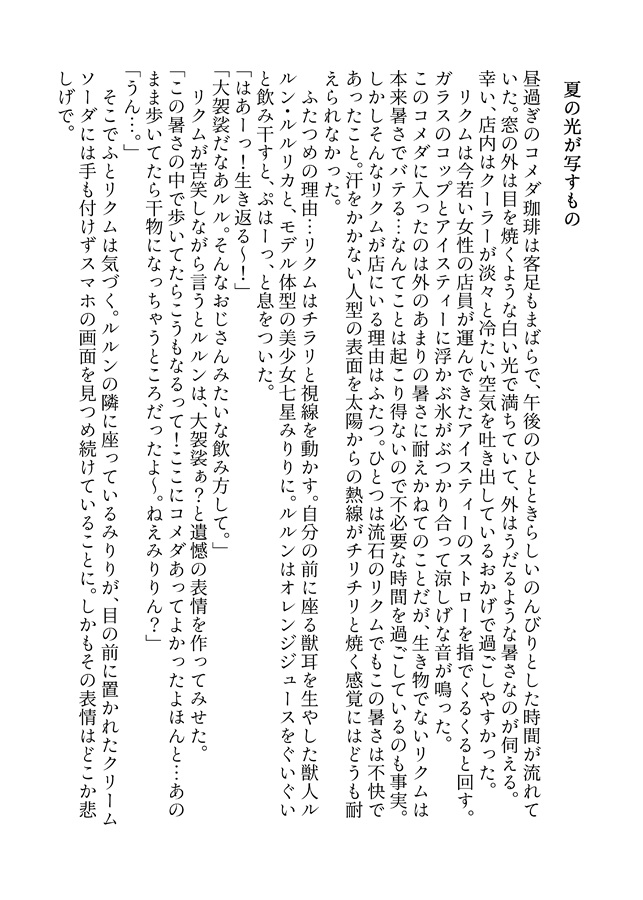 夏の光が写すもの
昼過ぎのコメダ珈琲は客足もまばらで、午後のひとときらしいのんびりとした時間が流れて
いた。窓の外は目を焼くような白い光で満ちていて、外はうだるような暑さなのが伺える。
幸い、店内はクーラーが淡々と冷たい空気を吐き出しているおかげで過ごしやすかった。
リクムは今若い女性の店員が運んできたアイスティーのストローを指でくるくると回す。
ガラスのコップとアイスティーに浮かぶ氷がぶつかり合って涼しげな音が鳴った。
このコメダに入ったのは外のあまりの暑さに耐えかねてのことだが、生き物でないリクムは
本来暑さでバテる…なんてことは起こり得ないので不必要な時間を過ごしているのも事実。
しかしそんなリクムが店にいる理由はふたつ。ひとつは流石のリクムでもこの暑さは不快で
あったこと。汗をかかない人型の表面を太陽からの熱線がチリチリと焼く感覚にはどうも耐
えられなかった。
ふたつめの理由…リクムはチラリと視線を動かす。自分の前に座る獣耳を生やした獣人ル
ルン・ルルリカと、モデル体型の美少女七星みりりに。ルルンはオレンジジュースをぐいぐい
と飲み干すと、ぷはーっ、と息をついた。
「はあーっ！生き返る〜！」
「大袈裟だなあルル。そんなおじさんみたいな飲み方して。」
リクムが苦笑しながら言うとルルンは、大袈裟ぁ？と遺憾の表情を作ってみせた。
「この暑さの中で歩いてたらこうもなるって！ここにコメダあってよかったよほんと…あの
まま歩いてたら干物になっちゃうところだったよ〜。ねえみりりん？」
「うん…。」
そこでふとリクムは気づく。ルルンの隣に座っているみりりが、目の前に置かれたクリーム
ソーダには手も付けずスマホの画面を見つめ続けていることに。しかもその表情はどこか悲
しげで。